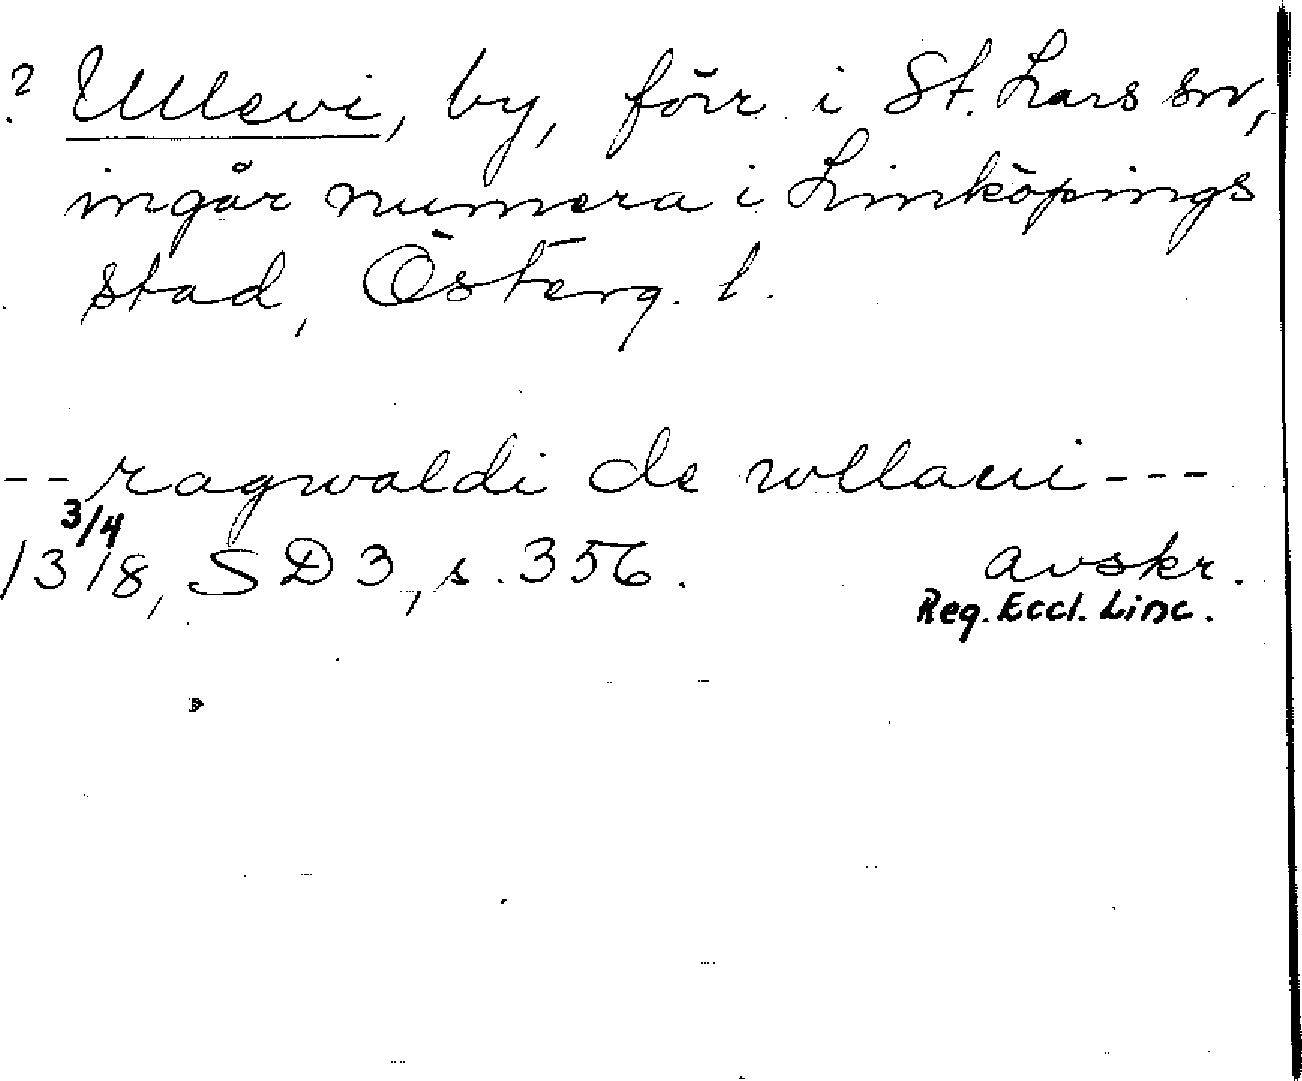 ? Ullevi, by, förr i St. Lars sn,
ingår numera i Linköpings
stad, Österg. l.
-- ragwaldi de wllaui ---
3/4
1318, SD 3, s. 356. avskr.
Reg. Eccl. Linc.